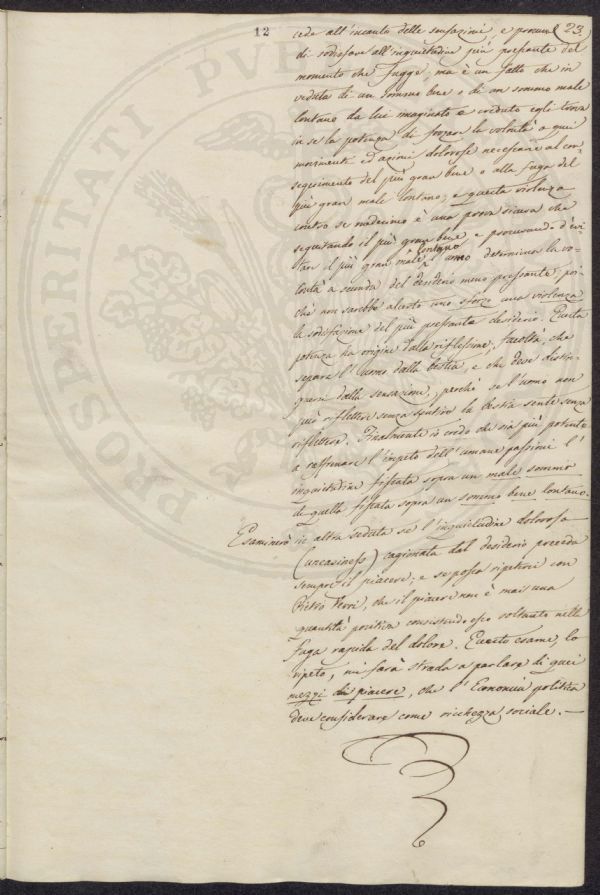 12
23.
cede all'incanto delle sensazioni, e procura
di sodisfare all'inquietudine più pressante del
momento che fugge; ma è un fatto che in
veduta di un sommo bene o di un sommo male
lontano da lui imaginato e creduto egli trova
in se la potenza di forzare la volontà a quei
movimenti ed azioni dolorose necessarie al con-
seguimento del più gran bene o alla fuga del
più gran male lontano; e questa violenza
contro se medesimo è una prova sicura che
seguitando il più gran bene e procurando d'evi
tare il più gran male lontano l'uomo determina la vo-
lontà a seconda del desiderio meno pressante, poi
chè non sarebbe al certo uno sforzo una violenza
la sodisfazione del più pressante desiderio. Questa
potenza ha origine dalla riflessione, facoltà, che
separa l'uomo dalla bestia, e che deve distin-
guersi dalla sensazione, perchè se l'uomo non
può riflettere senza sentire la bestia sente senza
riflettere. Finalmente io credo che sia più potente
a raffrenare l'impeto dell'umane passioni l'
inquietudine fissata sopra un male sommo
di quella fissata sopra un sommo bene lontano.
Esaminerò in altra seduta se l'inquietudine dolorosa
(uneasiness) cagionata dal desiderio preceda
sempre il piacere; e se possa ripetersi con
Pietro Verri, che il piacere non è mai una
quantità positiva consistendo esso soltanto nella
fuga rapida del dolore. Questo esame, lo
ripeto, mi farà strada a parlare di quei
mezzi di piacere, che l'Economia politica
deve considerare come ricchezza sociale. —
PROSPERITATI PVB